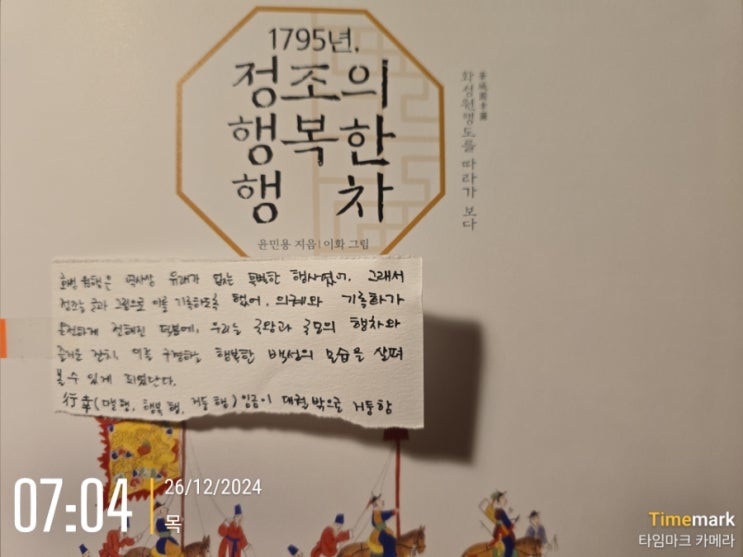 1795년,
정조의
행복한
행차
화성원행도를 따라가 보다
윤민용 지음 | 이화 그림
원행은 역사상 유래가 없는 특별한 행사였어. 그래서
글과 그림으로 이를 기록하도록 했어. 의궤와 기록화가
온전하게 전해진 덕분에, 우리는 국왕과 국모의 행차와
즐거운 잔치, 이를 구경하는 행복한 백성의 모습을 살펴
볼 수 있게 되었단다.
行幸(다닐 행, 행복 행, 거둥 행) 임금이 대궐 밖으로 거둥함
07:04
26/12/2024
목
Timemark
타임마크 카메라